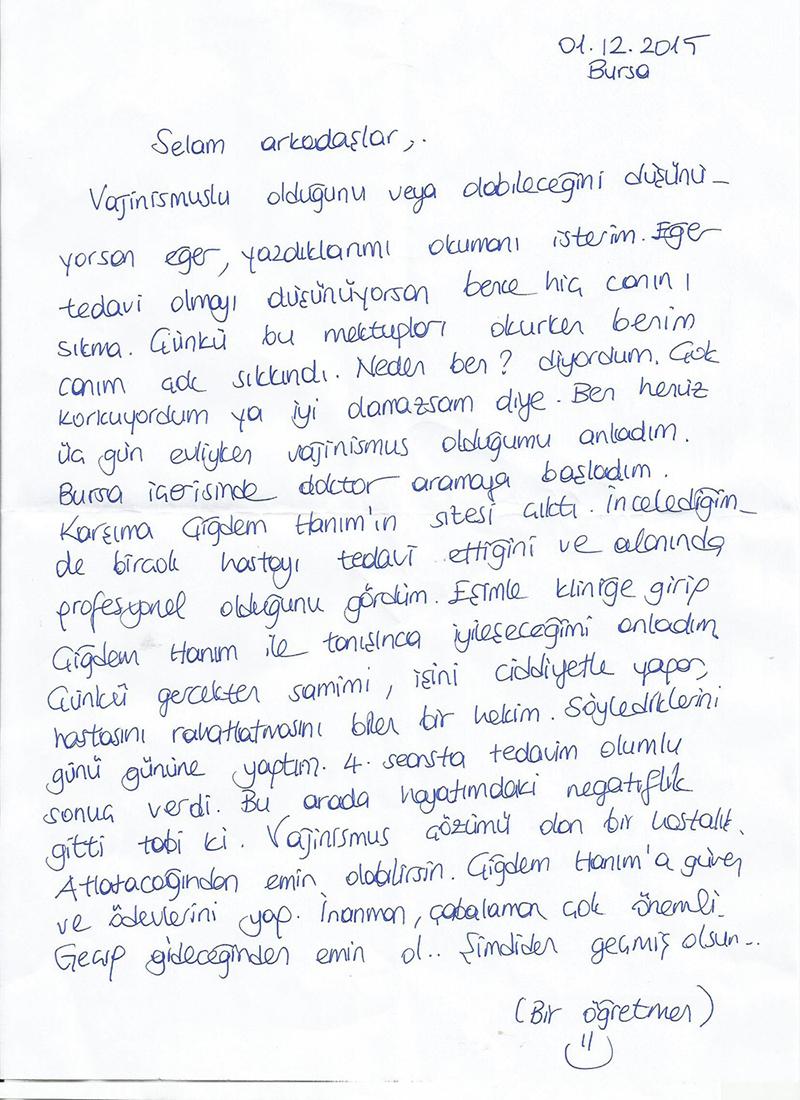 01.12.2015
Bursa
Selam arkadaşlar,.
Vajinismuslu olduğunu veya olabileceğini düşünü-
yorsan eğer, yazdıklarımı okumanı isterim. Eğer
tedavi olmayı düşünüyorsan bence hiç canını
sıkma. Çünkü bu mektupları okurken benim
canım çok sıkkındı. Neden ben? diyordum. Çok
korkuyordum ya iyi olamazsam diye. Ben henüz
üç gün evliyken vajinismus olduğumu anladım.
Bursa içerisinde doktor aramaya başladım.
Karşıma Çiğdem Hanım'ın sitesi çıktı. İncelediğim-
de birçok hastayı tedavi ettiğini ve alanında
profesyonel olduğunu gördüm. Eşimle kliniğe girip
Çiğdem Hanım ile tanışınca iyileşeceğimi anladım.
Çünkü gerçekten samimi, işini ciddiyetle yapar,
hastasını rahatlatmasını bilen bir hekim. Söylediklerini
günü gününe yaptım. 4. seansta tedavim olumlu
sonuç verdi. Bu arada hayatımdaki negatiflik
gitti tabi ki. Vajinismus çözümü olan bir hastalık.
Atlatacağından emin olabilirsin. Çiğdem Hanım'a güven
ve ödevlerini yap. İnanman, çabalaman çok önemli.
Geçip gideceğinden emin ol.. Şimdiden geçmiş olsun...
(Bir öğretmen)